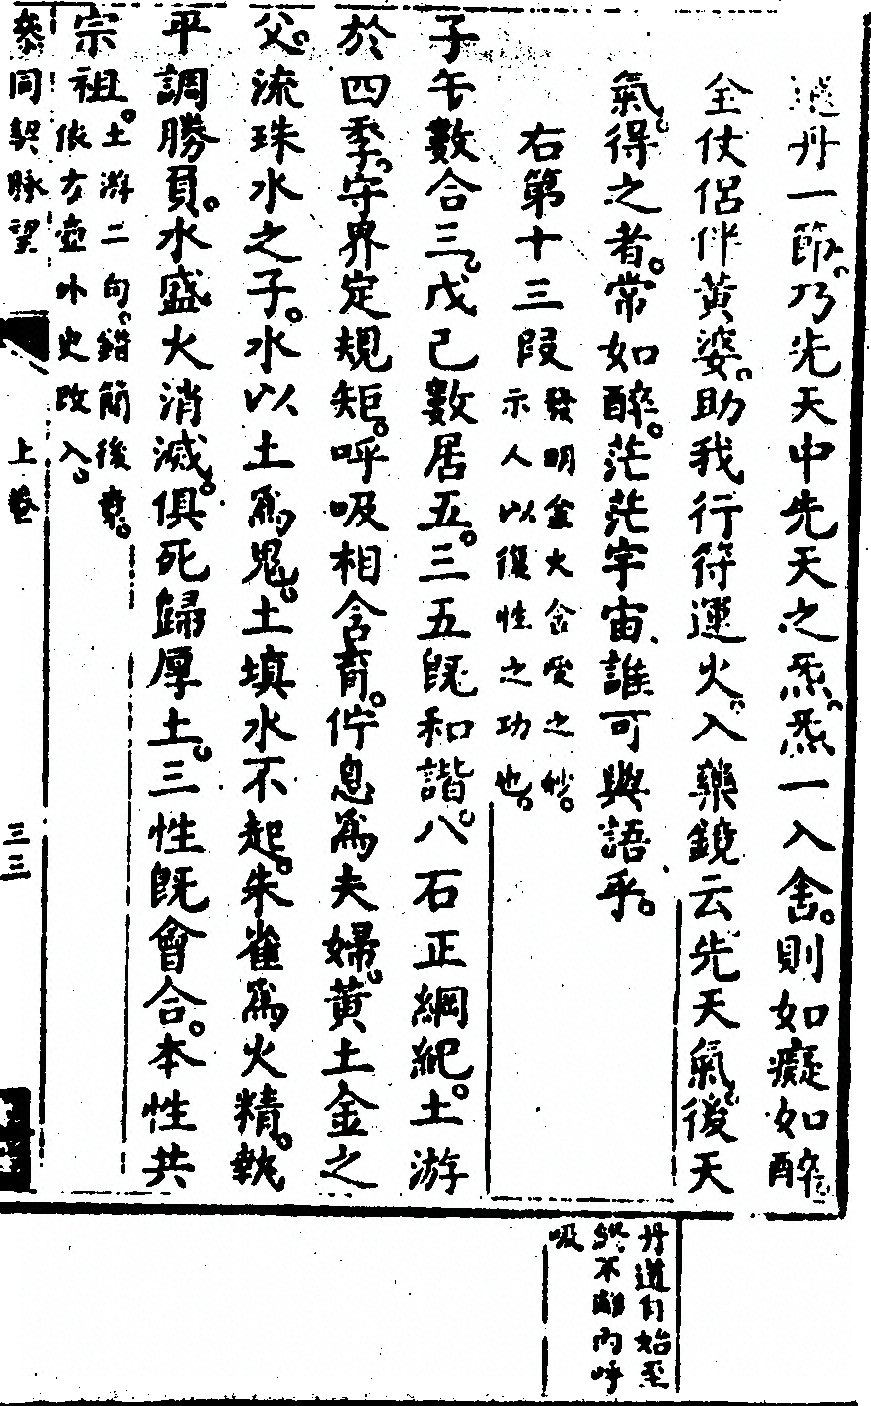 還丹一節乃先天中先天之炁炁一入舍則如癡如醉
全仗侶伴黃婆助我行符運火入藥鏡云先天氣後天
氣得之者常如醉茫茫宇宙誰可與語乎
右第十三段發明金火含受之妙
示人以復性之功也
子午數合三戊己數居五三五旣和諧八石正綱紀土游
於四季守界定規矩呼吸相含育佇息爲夫婦黃土金之
父流珠水之子水以土爲鬼土填水不起朱雀爲火精執
平調勝負水盛火消滅俱死歸厚土三性旣會合本性共
宗祖土游二句錯簡後章
依方壺外史改入
參同契脉望
上卷
三三
丹道自始至
終不離內呼
吸